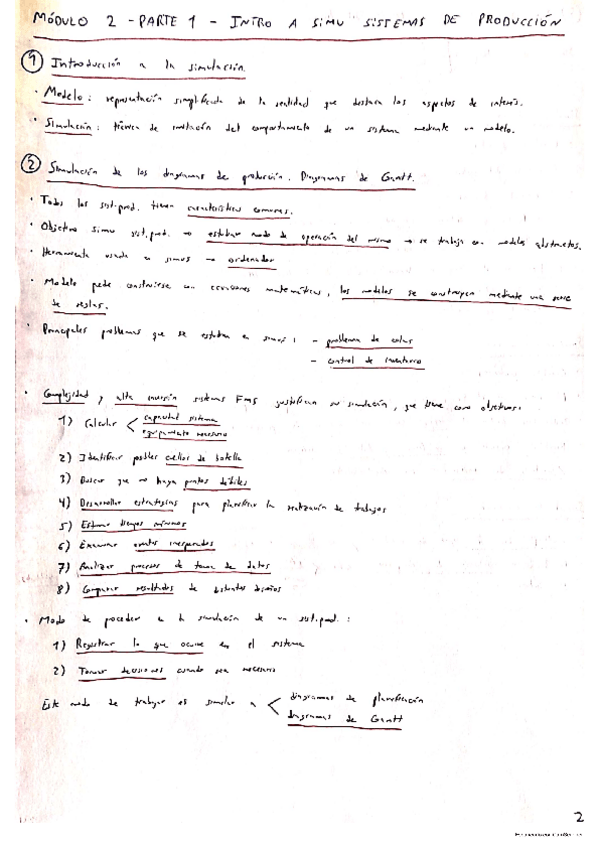 MÓDULO 2 - PARTE 1 - INTRO A SIMU SISTEMAS DE PRODUCCIÓN
1 Introducción a la simulación.
· Modelo: representación simplificada de la realidad que destaca los aspectos de interés.
· Simulación: técnica de imitación del comportamiento de un sistema mediante un modelo.
2 Simulación de los diagramas de producción. Diagramas de Gantt.
· Todos los sist.prod. tienen características comunes.
· Objetivo simu sist.prod. → estudiar modo de operación del mismo → se trabaja con modelos abstractos.
· Herramienta usada en simus → ordenador
· Modelo puede construirse con ecuaciones matemáticas, los modelos se construyen mediante una serie
de reglas.
· Principales problemas que se estudian en simus: - problema de colas
- control de inventario
· Complejidad y alta inversión sistemas FMS justifican su simulación, que tiene como objetivos:
1) Calcular < capacidad sistema
equipamiento necesario
2) Identificar posibles cuellos de botella
3) Buscar que no haya puntos débiles
4) Desarrollar estrategias para planificar la realización de trabajos
5) Estimar tiempos mínimos
6) Examinar eventos inesperados
7) Analizar procesos de toma de datos
8) Comparar resultados de distintos diseños
· Modo de proceder en la simulación de un sist.prod.:
1) Registrar lo que ocurre en el sistema
2) Tomar decisiones cuando sea necesario
Este modo de trabajar es similar a < diagramas de planificación
diagramas de Gantt
2